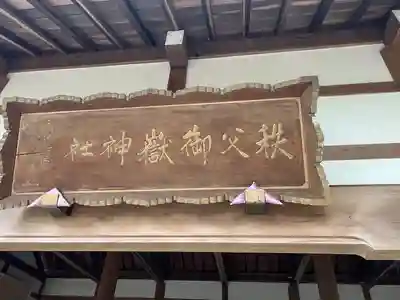 秩父御嶽神社